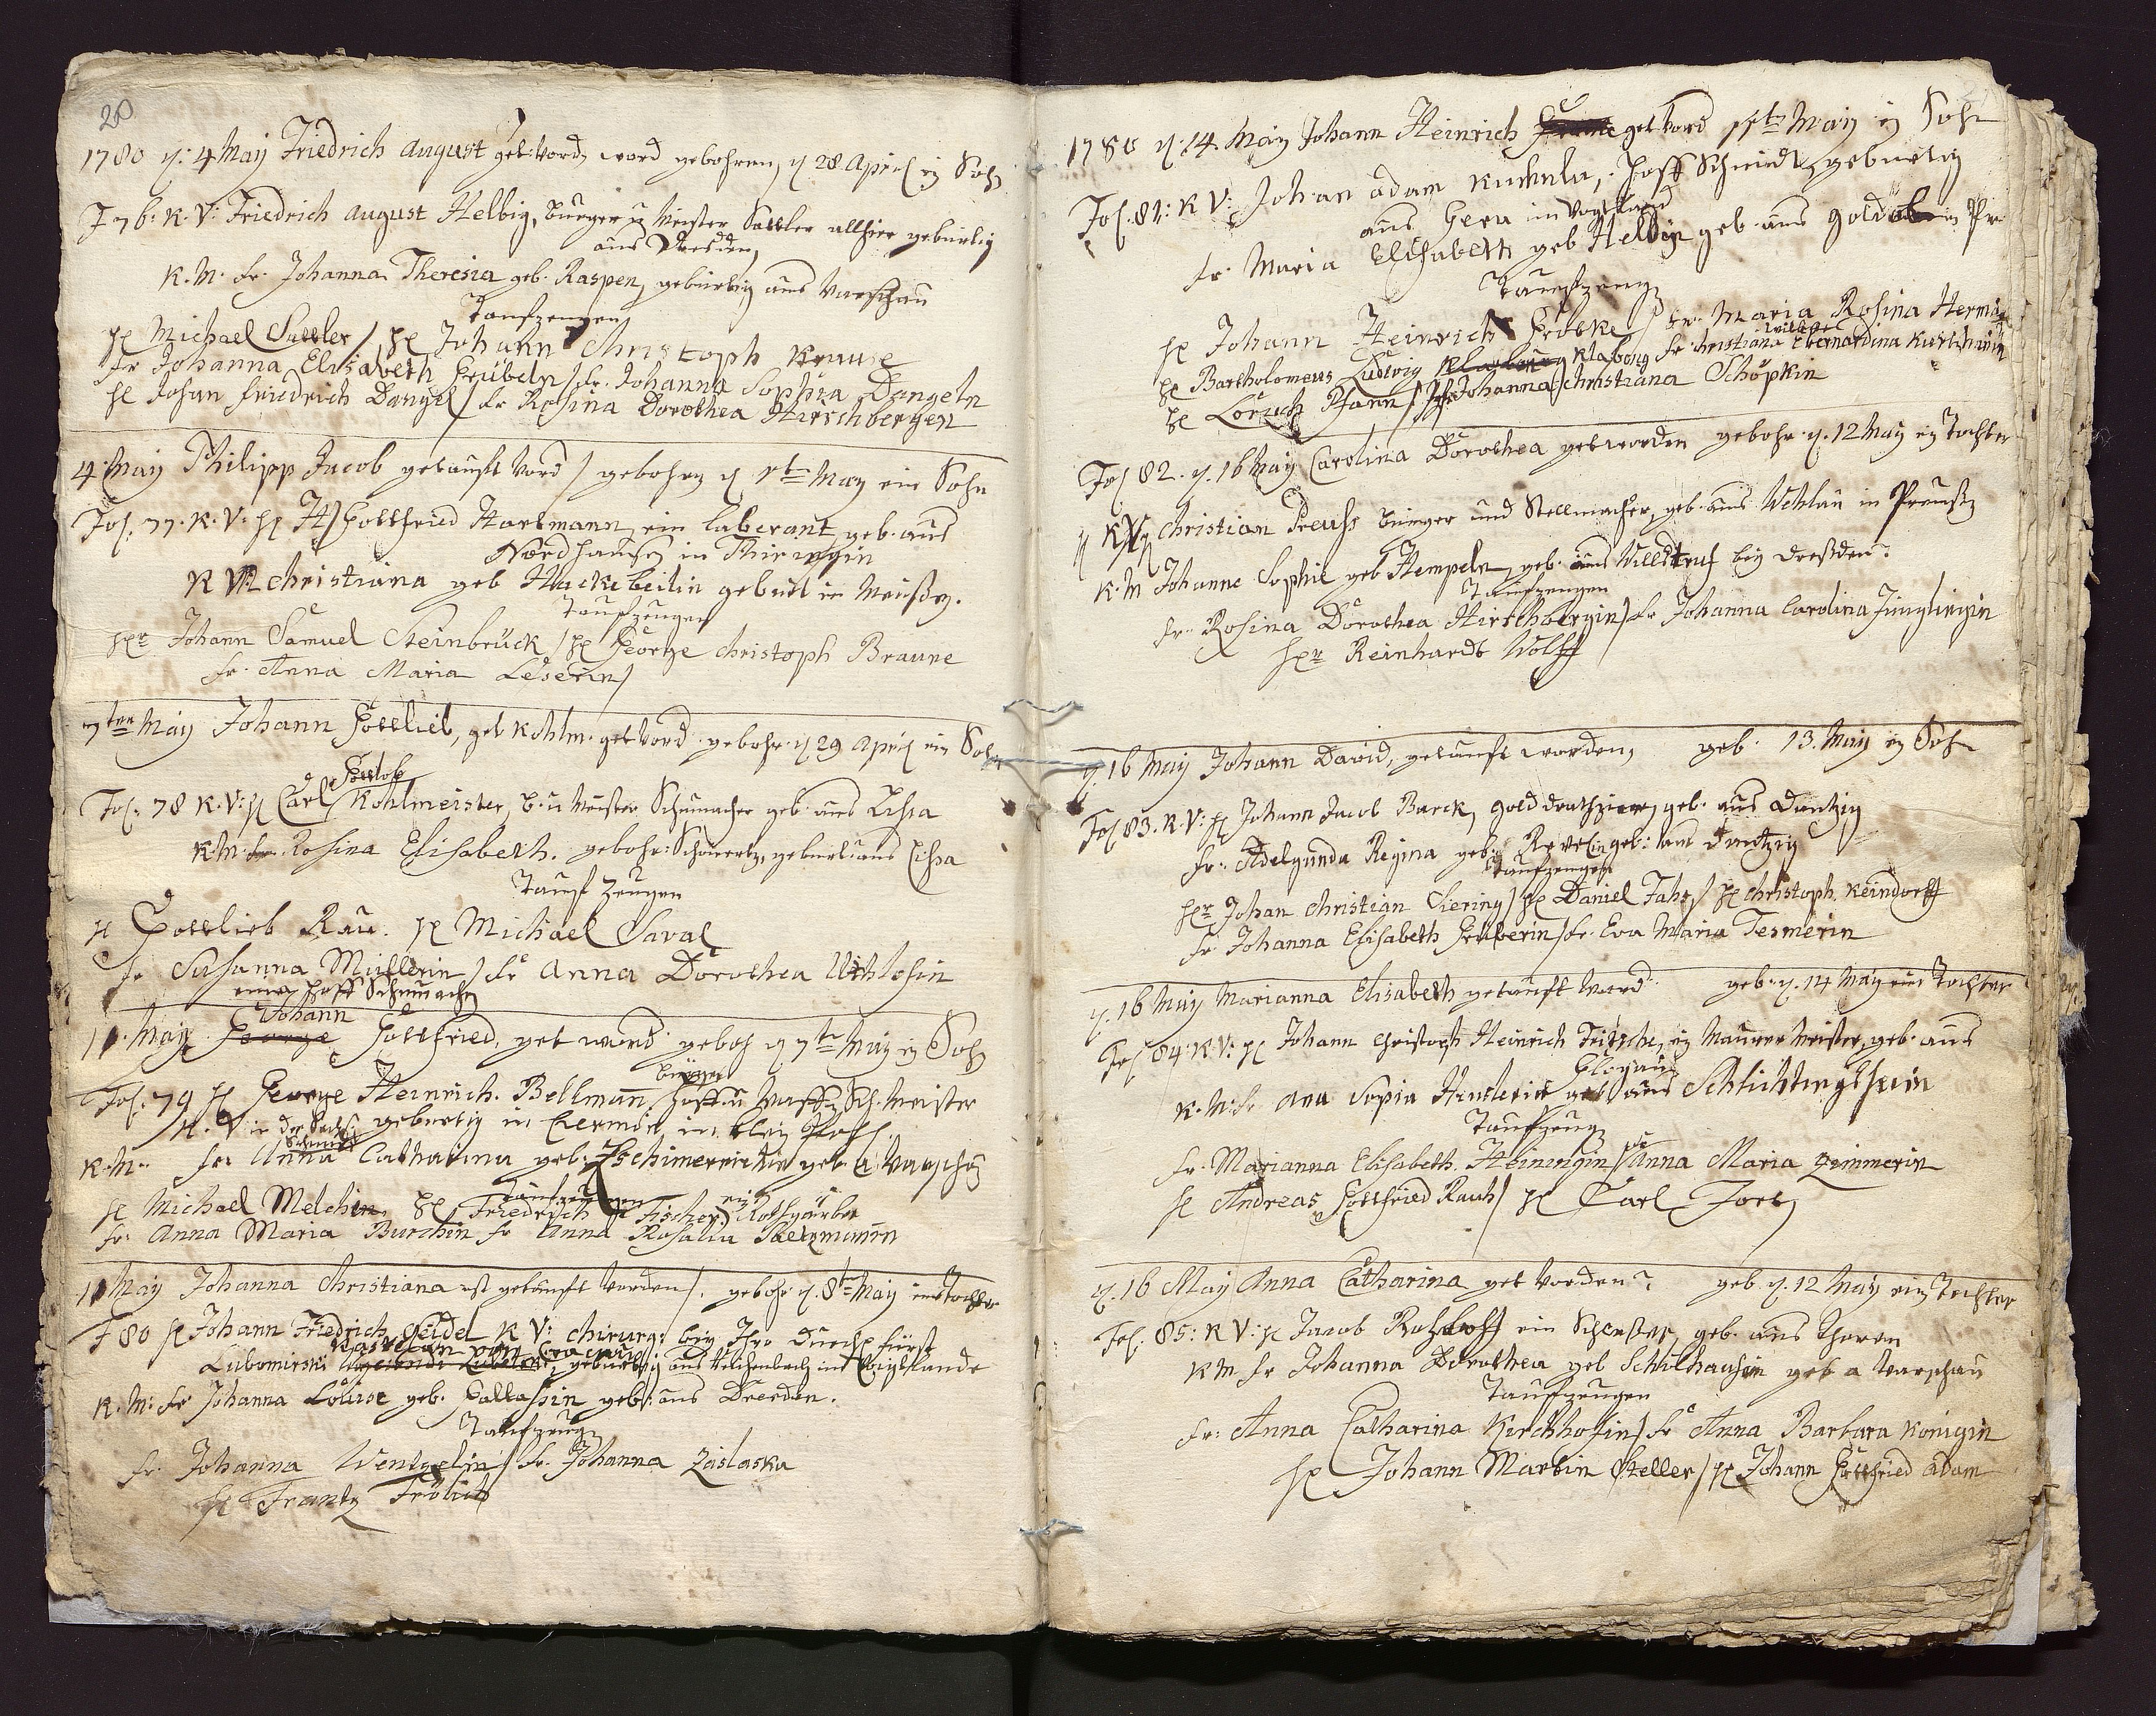 20
1780 d. 4 May Friedrich August get. word, word gebohren, d 28 April ein Sohn
F 76. K. V: Friedrich August Helbig, Burger u Meister Sattler allhier gebürtig
aus Dresden,
K. M. fr. Johanna Theresia geb. Raspen, gebürtig aus Warschau
Taufzeugen
H Michael Sattler / H Johann Christoph Krause
fr Johanna Elisabeth Grübeln / fr. Johanna Sophia Dangeln
H Johan Friedrich Dangel / fr Rosina Dorothea Hirschbergen
4 May Philipp Jacob getauft word / gebohren d 1te May ein Sohn
Fol. 77. K. V: H Gottfried Hartmann, ein Laberant, geb. aus
Nordhausen in Thiringin
K M Christiana geb Hackebeilin gebürt in Meißen.
Taufzeugen
Hr Johann Samuel Steinbrück / H George Christoph Braune
fr. Anna Maria Leserin /
7ten May Johann Gottlieb, get word gebohr. d 29 April ein Sohn
Gottlob
Fol. 78 K. V: H Carl Kohlmeister, B. u Meister Schumacher geb. aus Lissa
K. M. fr. Rosina Elisabeth. gebohr: gebürt: aus Lissa
Tauf Zeugen
H Gottlieb Rau. H Michael Saval
fr Susanna Müllerin / fr Anna Dorothea
eines Hoff Schumacher
Johann
11 May George Gottfried, get word geboh d 7te May ein Sohn
Bürger
Fol. 79 H George Heinrich. Bellmann Hoff u Waff Sch. Meister
K. V gebürtig in in klein Pohl.
K. M. fr: Anna Catharina geb: geb. a Warschau
Taufzeugen
H Michael Melchin, H Friedrich Fischer, ein Rothgärber
fr: Anna Maria Burchin fr Anna Rosalia Saltzmannin
11 May Johanna Christiana ist getauft worden /. gebohr d. 8te May eine Tochter
F 80 H Johann Friedrich Seidel K V: Chirurg: bey Ihro Durchl Fürst
Kastelan von Cracau
Lubomirski gebürtig aus Reichenbach im Voigtlande
K. M: fr Johanna Louise geb. Gallassin geb: aus Dresden.
Taufzeugen
fr. Johanna Wentzelin / fr. Johanna Zaslaska
H Frantz Frölich
1780 d. 14. May Johann Heinrich get word 11te May ein Sohn
Fol. 81: K V: Johan Adam Kuchnla, Hoff Schmidt, gebürtig
aus Gera im Vogtland
fr. Maria Elisabeth geb Helbig geb. aus Goldab in Pr
Taufzeugen
H Johann Heinrich Grübke / fr. Maria Rosina Herman
H Bartholomeus Ludwig Klabong fr Christiana Bernardina
H Lorentz Pfann / Johanna Christiana Schöpkin
Fol 82. d. 16 May Carolina Dorothea get worden gebohr. d. 12 May ein Tochter
K V Christian Preuss Burger und Stellmacher, geb. aus Wehlau in Preußen
K. M Johanne Sophie geb Hempeln, geb. aus Willstruf bey Dreßden.
Taufzeugen
fr. Rosina Dorothea Hirschbergin / fr Johanna Carolina Jünglingin
Hr Reinhardt Wolff
d. 16 May Johann David, getauft worden, geb. 13. May ein Sohn
Fol 83. K. V: H Johann Jacob Barck, Golddrathzieer, geb. aus Dantzig
fr: Adelgunda Regina geb: geb: aus Dantzig
Taufzeugen
Hr Johan Christian Siering / H Daniel Fahs / H Christoph. Keindorff
fr. Johanna Elisabeth Gruberin / fr. Eva Maria Tesmerin
d. 16 May Marianna Elisabeth getauft word. geb. d. 14 May eine Tochter
Fol 84. K. V: H Johann Christoph Heinrich Fritzsche, ein Maurer Meister, geb. aus
Glogau
K. M: fr Ana Sopia Hentlerin geb aus Schlichtingsheim
Taufzeug
fr. Marianna Elisabeth. Heiningin / fr Anna Maria Zimmerin
H Andreas Gottfried Rauh / H Carl Fort
d. 16 May Anna Catharina get worden geb. d. 12 May ein Tochter
Fol. 85: K V: H Jacob ein Schlosser, geb. aus Thoren
K M fr Johanna Dorothea geb Schulhausin geb a Warschau
Taufzeugen
fr: Anna Catharina Kirchhofin / fr Anna Barbara Königin
H Johann Martin Steller / H Johann Gottfried Adam